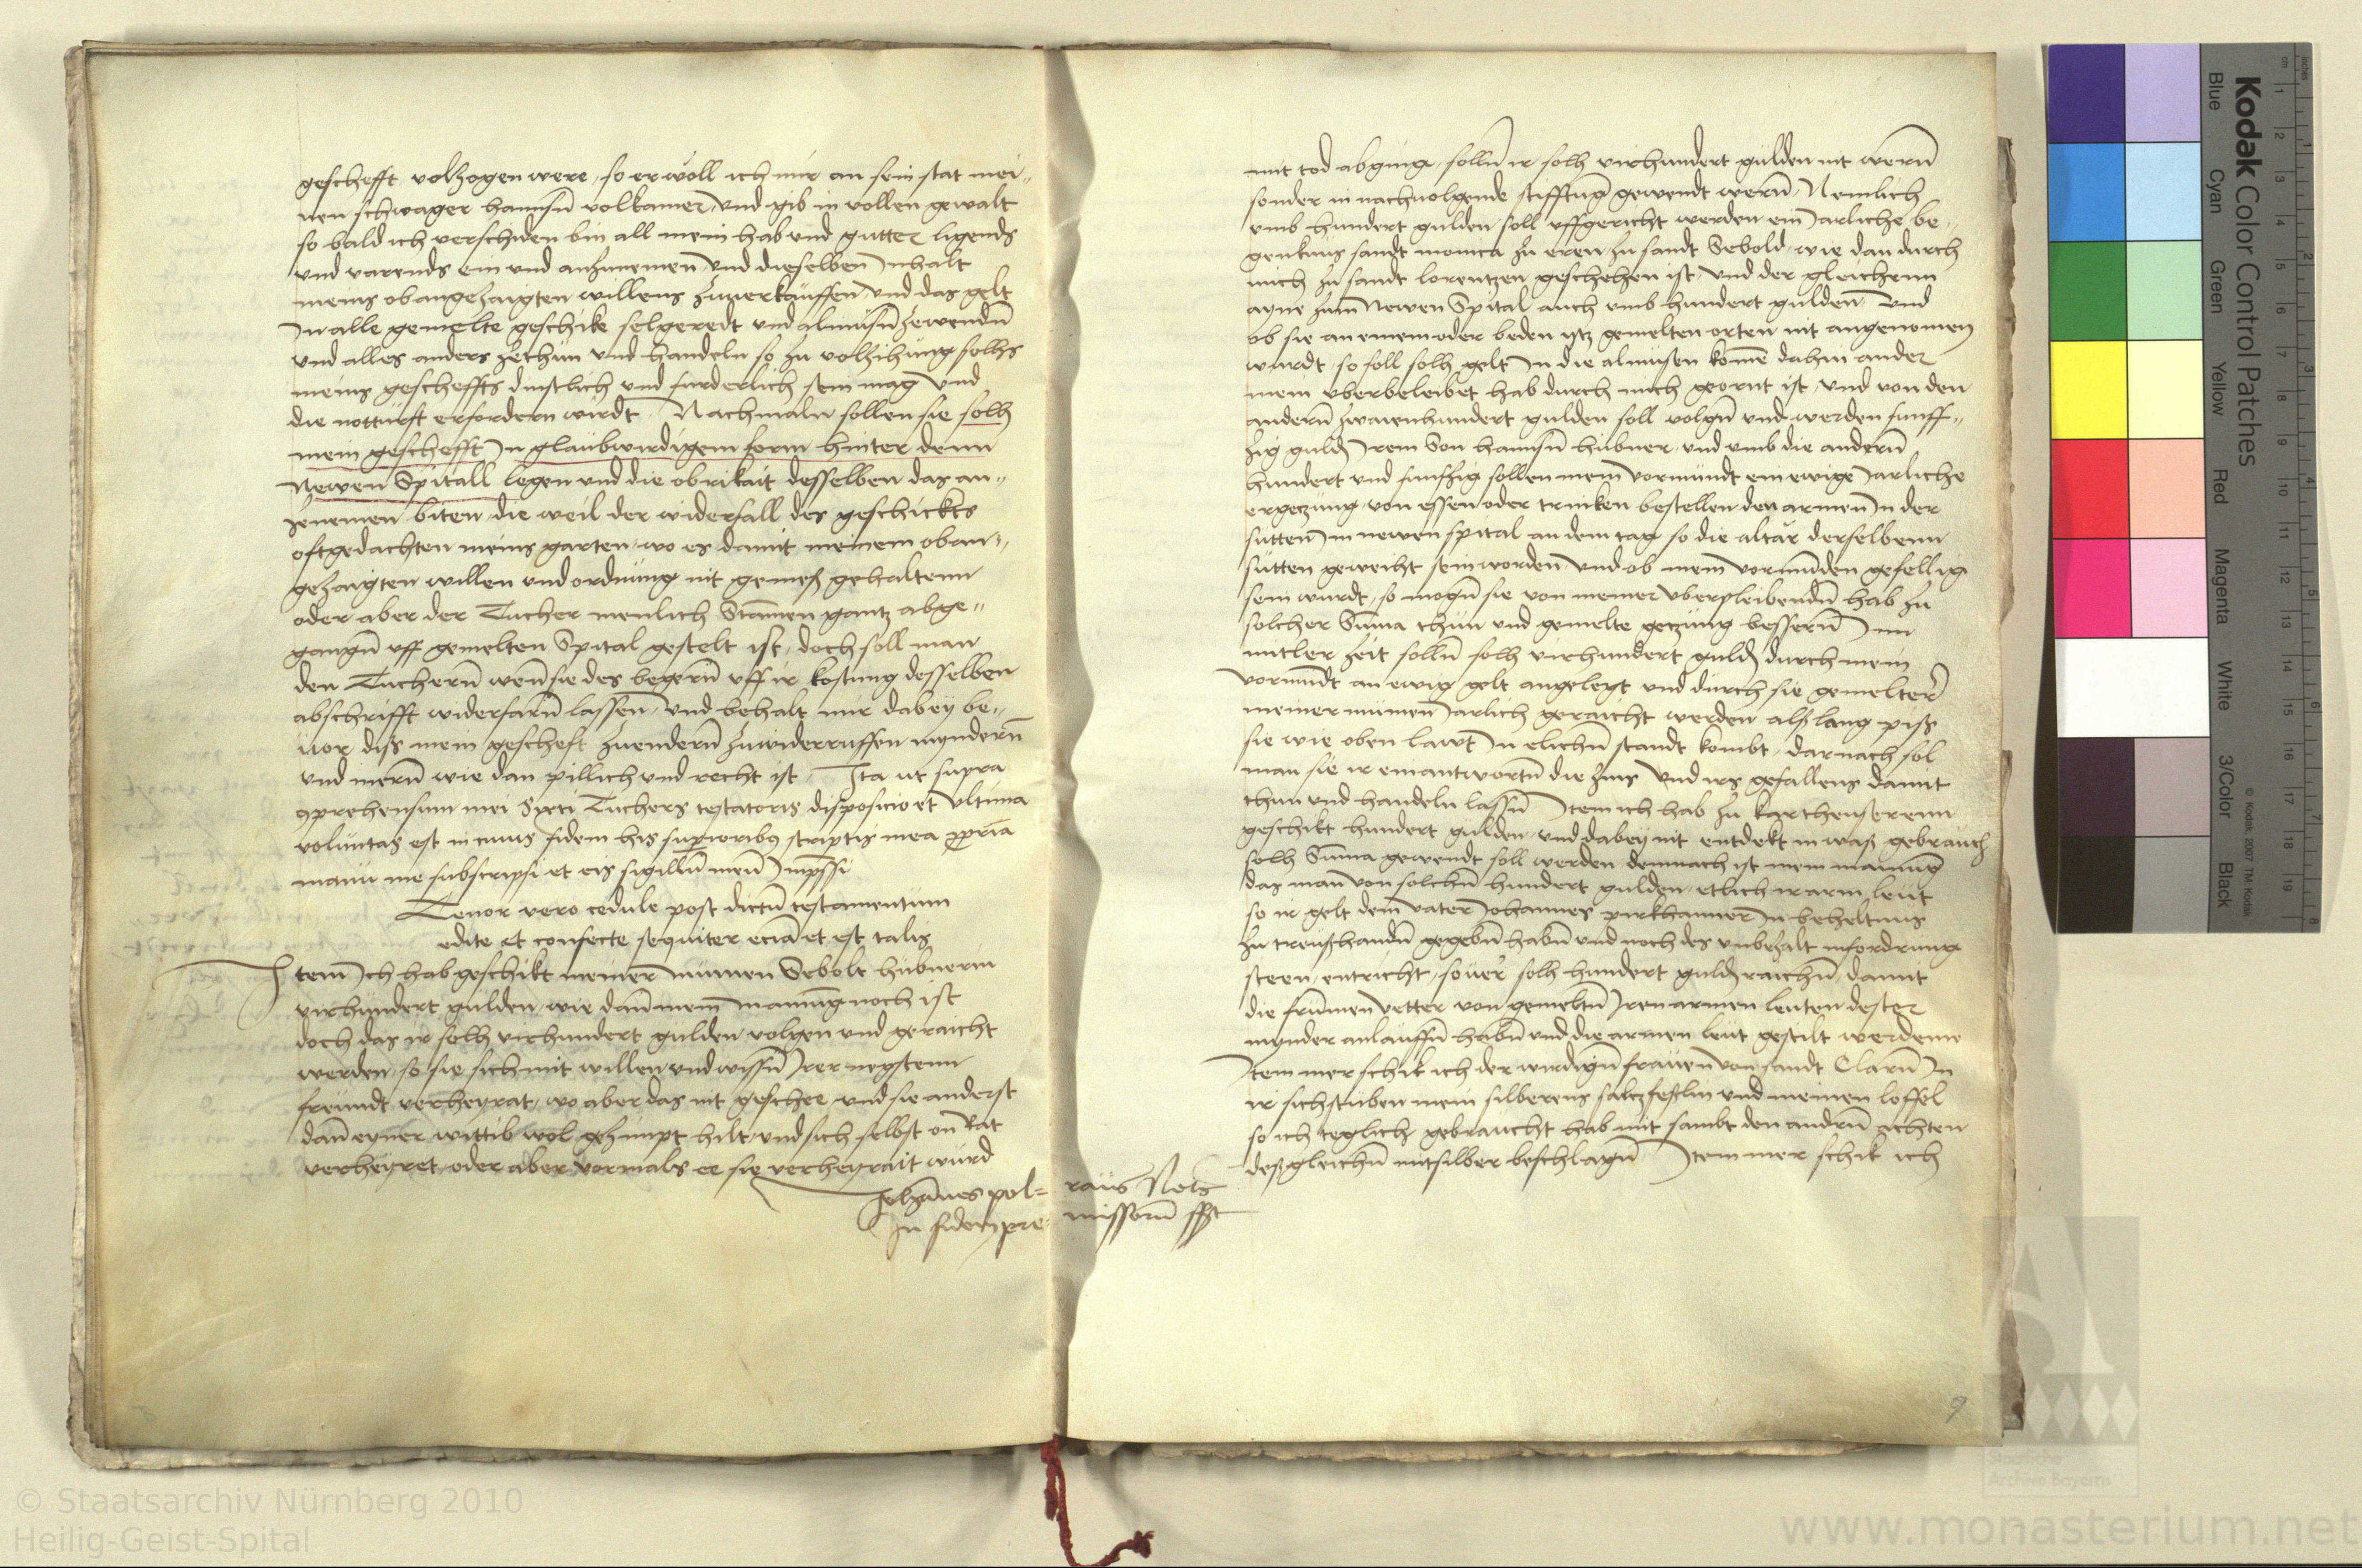 geschefft volzogen were, so erwoll ich mir an sein stat mei„
nen schwager hannsn̄ volkamer, und gib in vollen gewalt
so bald ich verschiden bin all mein hab und gutter ligends
und varends ein und anzunemen und dieselben Inhalt
meins obangezaigten willens zuuerkauffen und das gelt
In alle gemelte geschike selgeredt und almusn̄ zewendn̄
und alles anders zethun und handeln so zu volzihung solhs
meins gescheffts dinstlich und furderlich sein mag und
die notturft erfordern wirdt Nachmaln sollen sie solh
mein geschefft In glaubwirdigem form hinter denn
Newen Spitall legen und die obrikait desselben das an„
zenemen biten, die weil der widerfall des geschickts
oftgedachten meins garten, wo es damit meinem oban„
gezaigten willen und ordnung nit gemeß gehaltenn
oder aber der Tucher menlich Stammen gantz abge„
gangn̄ uff gemelten Spital gestelt ist, doch soll man
den Tuchern̄ wen̄ sie des begern̄ uff ir kostung desselben
abschrifft widerfarn̄ lassen, und behalt mir dabey be„
uor diss mein gescheft zuendern̄ zuwiderruffen myndern̄
und mern̄ wie dan pillich und recht ist, Ita ut supra
ꝯprehensum mei Sixti Tuchers testatoris disposicio et ultima
voluntas est in cuius fidem his superioribꝯ scriptis mea ꝓpria
manu me subscripsi et eis sigillū meū Imp̄ssi
Tenor vero cedule post dictū testamentum
edite et confecte sequiter eciā et est talis
Item Ich hab geschikt meiner mumen Sebolt hubnerin
virhundert gulden, wie dan̄ mein mainung noch ist
doch das ir solh virhundert gulden volgen und geraicht
werden, so sie sich mit willen und wissn̄ Irer negstenn
freundt verheyrat, wo aber das nit geschee und sie anderst
dan̄ eyner wittib wol gezimpt hilt, und sich selbst on̄ Rat
verheyret, oder aber vormals ee sie verheyrait wurd
Joha̅nes pol= raus Not9
In fidem pre= missorū sßt
mit tod abging, solln̄ ir solh virhundert gulden nit wern̄
sonder in nachuolgende stifftūg gewendt wern̄, Nemlich
umb hundert gulden soll uffgericht werden ein Jarliche be„
genknus sandt monica zu eren zu sandt Sebold, wie dan durch
mich zu sandt lorentzen geschehen ist, und der gleichenn
ayne zum Newen Spital auch umb hundert gulden, und
ob sie an einem oder beden itz gemelten orten nit angenomen
wurdt, so soll solh gelt In die almusen komē dahin ander
mein uberbeleibet hab durch mich geornt ist, und von den
andern̄ zwaienhundert gulden soll volgn̄ und werden funff„
zig guld Irem Son hannsn̄ hubner, und umb die andern̄
hundert und funfzig sollen mein vormundt ein ewige Jarliche
ergetzung, von essen oder trinken bestellen den armen In der
sutten Im newen spital an dem tag so die altar derselbenn
sutten geweiht sein worden und ob mein vormunden gefellig
sein wurdt, so mogn̄ sie von meiner uberpleibendn̄ hab zu
solcher Sūma thun und gemelte getzung bessern̄ Im
mitler zeit solln̄ solh virhundert guld durch mein
vormundt an ewig gelt angelegt und durch sie gemelter
meiner mumen Jarlich geraicht werden als lang piss
sie wie oben lawt In elichn̄ standt kombt, darnach sol
man sie ir einantwortn̄ die zins und irs gefallens damit
thun und handeln lassn̄ Item ich hab zu kartheuserenn
geschikt hundert gulden, und dabey nit entdekt in was gebrauch
solh Sūma gewendt soll werden demnach ist mein mainūg
das man von solchn̄ hundert gulden, etlich ir arm leut
so ir gelt dem vater Johannes pirkhaimer In beheltnus
zu treushandn̄ gegebn̄ habn̄ und noch des unbezalt in fordrung
steen, entricht, souer solh hundert guld raichn̄, damit
die frumen vetter von gemeltn̄ Iren armen leuten dester
mynder anlauffn̄ habn̄ und die armen leut gestilt werdenn
Item mer schik ich der wirdign̄ frauen von sandt Clarn̄ In
ir sichstuben mein silberens saltzfeslin und meinen loffel
so ich teglich gebraucht hab mit sambt den andrn̄ achten
desgleichn̄ mit silber beschlagn̄ Item mer schik ich
9
Kodak Color Control Patches
Blue Cyan Green Yellow Red Magenta White 3/Color Black
© Kodak, 2007 TM: Kodak
cm 1 2 3 4 5 6 7 8 9 10 11 12 13 14 15 16 17 18 19
inches 1 2 3 4 5 6 7 8
© Staatsarchiv Nürnberg 2010
Heilig-Geist-Spital
Staatliche
Archive Bayerns
www.monasterium.net